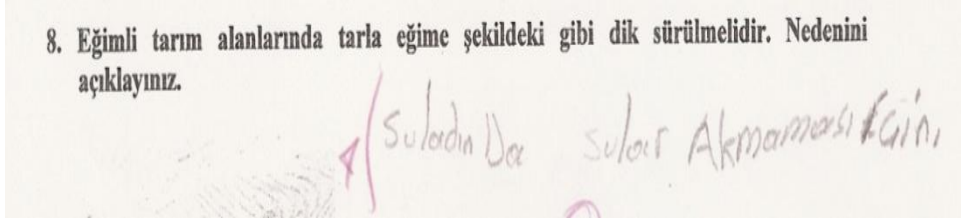 8. Eğimli tarım alanlarında tarla eğime şekildeki gibi dik sürülmelidir. Nedenini
açıklayınız.
Suladın Da Sular Akmaması İçin,